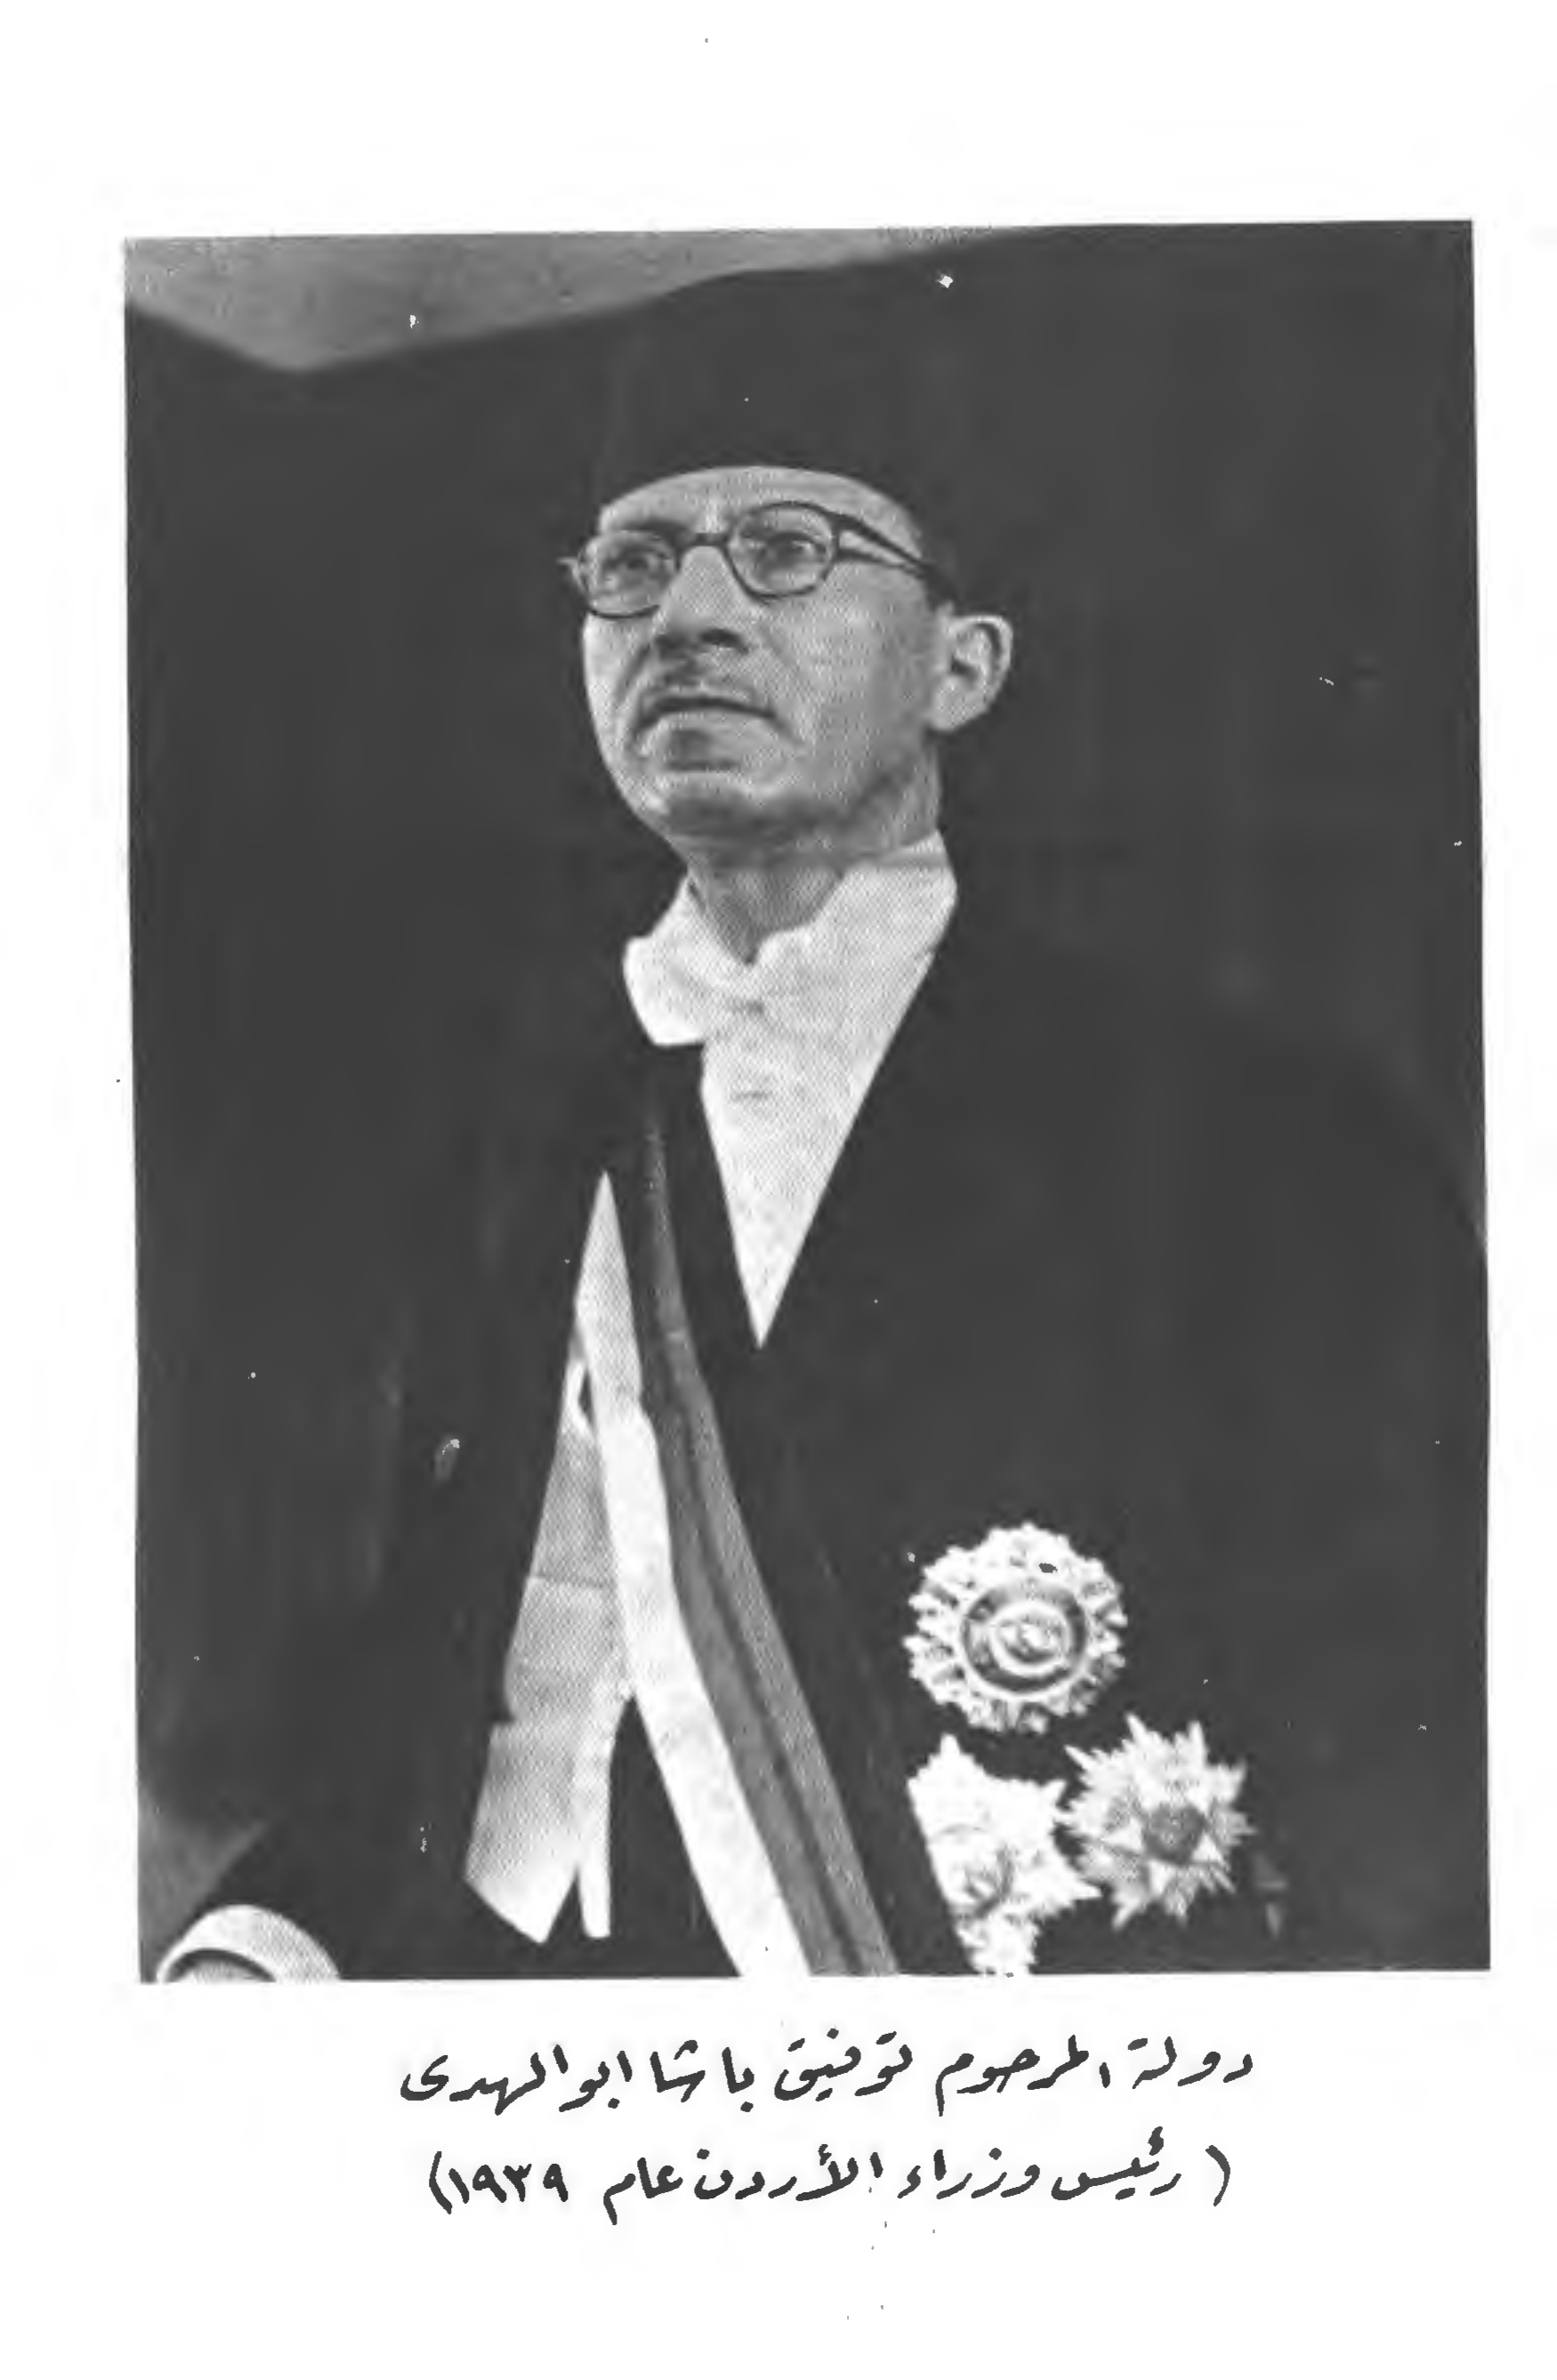 دولة المرحوم توفيق باشا ابوالهدى
(رئيس وزراء الأردن عام ١٩٣٩)